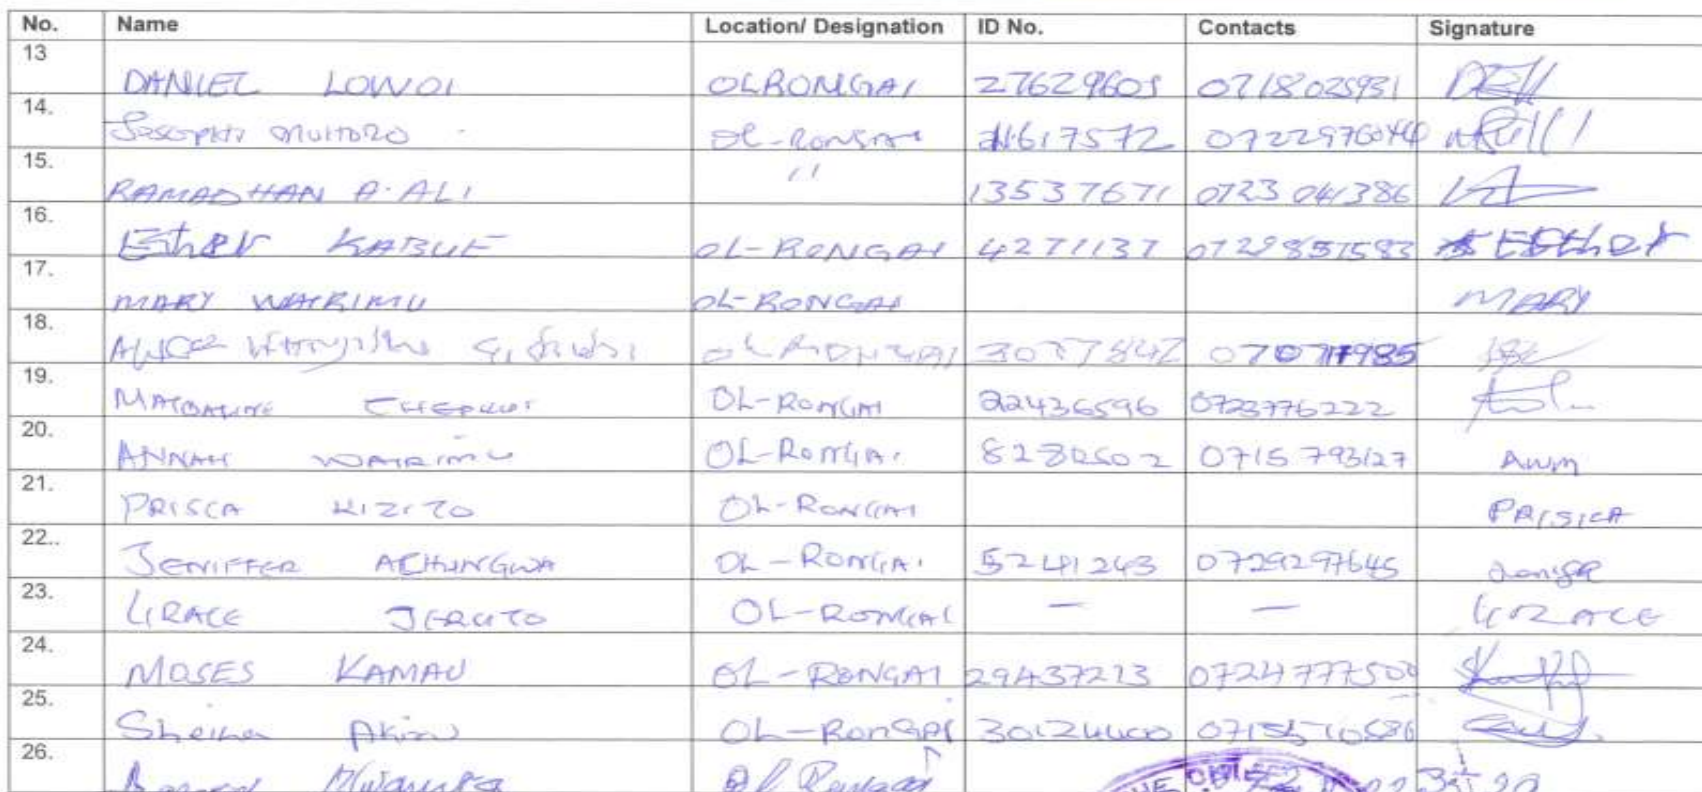 No. Name Location/ Designation ID No. Contacts Signature
13 DANIEL LOWOI OLRONGAI 27629605 0718025931
14. MUITORO OL-RONGAI 0722976044
15. RAMADHAN A. ALI " 13537671 0723 041386
16. Esther KABUE OL-RONGAI 4271137 0729851583 Esther
17. MARY WAIRIMU OL-RONGAI MARY
18. OL RONGAI
19. MAGDALINE CHEPKUI OL-RONGAI 22436596 0723776222
20. ANNAH WAIRIMU OL-RONGAI 8282502 0715 793127 AWM
21. PRISCA KIZITO OL-RONGAI PRISICA
22.. JENIFFER ACHUNGWA OL-RONGAI 5241243 0729297645
23. GRACE JERUTO OL-RONGAI - - GRACE
24. MOSES KAMAU OL-RONGAI 29437213 0724777500
25. Sheika Akiru OL-RONGAI 30124400
26. Ol Rongai